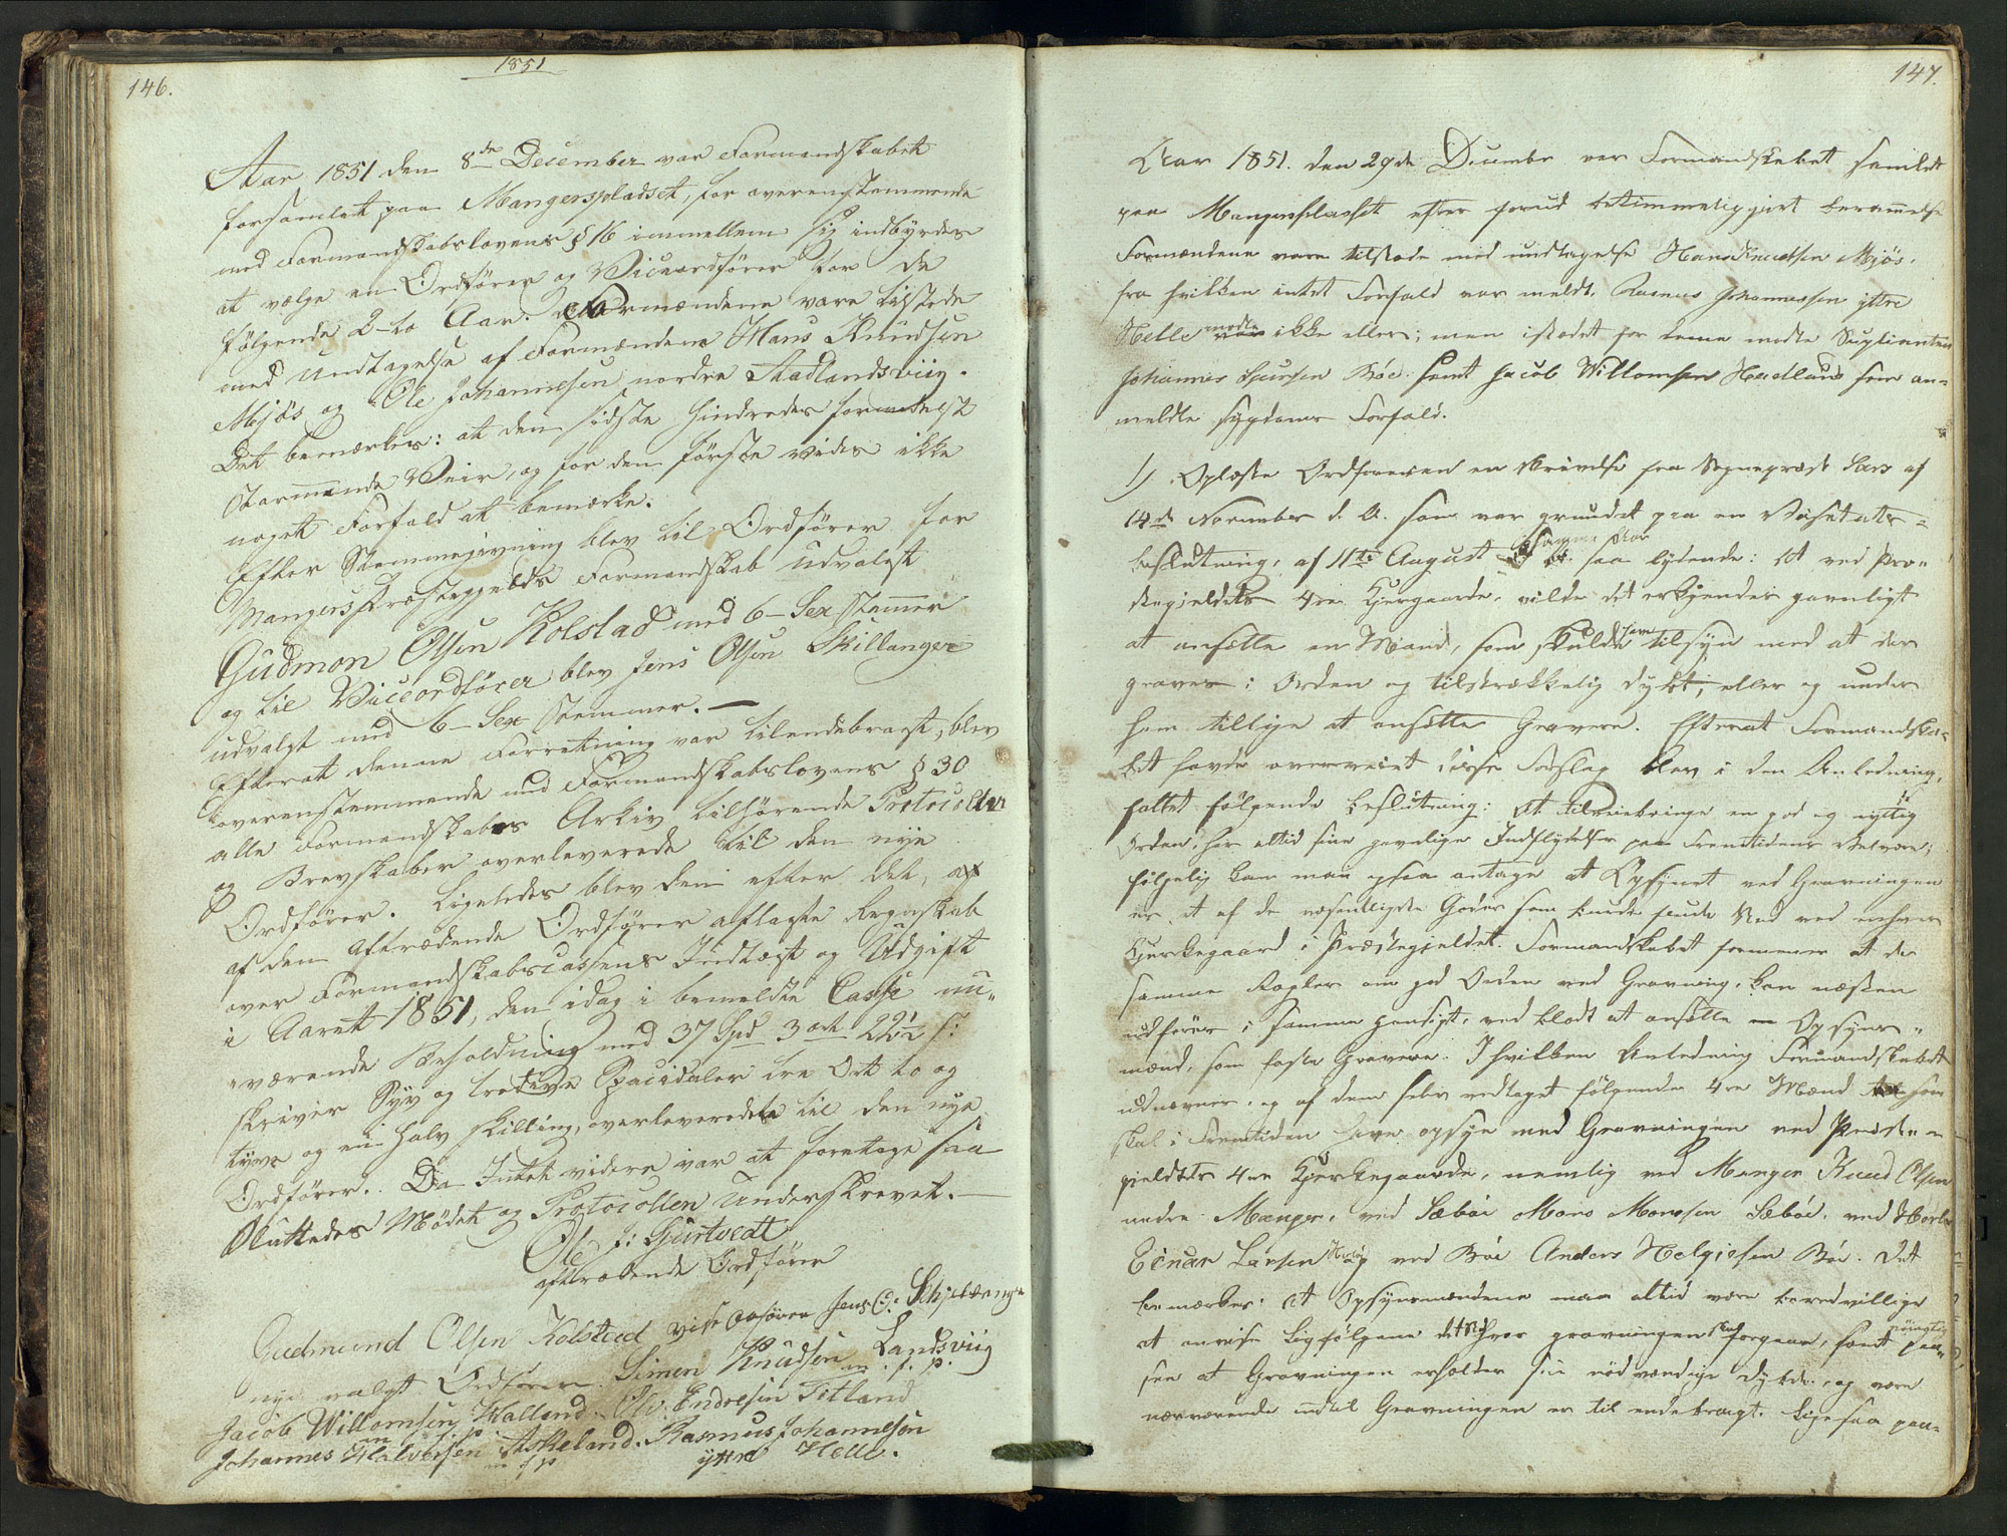 146.
1851
Aar 1851 den 8de December var Formandskabet
forsamlet paa Mangerspladset, for overenstemmende
med Formandskabslovens § 16 immellem sig indbyrdes
at vælge en Ordfører og Viceordfører for de
følgende 2-to Aar. Formændene vare tilstede
med Undtagelse af Formændene Hans Knudsen
Mjøs og Ole Johannesen nordre Aadlandsviig.
Det bemærkes: at den sidste hindredes formedelst
Stormende Veir, og for den første vides ikke
noget Forfald at bemærke.
Efter Stemmegivning blev til Ordfører for
Mangers Præstegjelds Formandskab udvalgt
Gudmon Olsen Kolstad med 6-Sex Stemmer
og til Viceordfører blev Jens Olsen Skillanger
udvalgt med 6-Sex Stemmer.—
Efterat denne Forretning var tilendebragt, blev
overenstemmende med Formandskabslovens § 30
alle Formandskabets Arkiv tilhørende Protocoller
og Brevskaber overleverede til den nye
Ordfører. Ligeledes blev den efter det, af
af den aftrædende Ordfører aflagte Regnskab
over Formandskabscassens Indtægt og Udgift
i Aaret 1851, den idag i bemeldte Casse nu„
„værende Beholdning med 37 Spd 3 ort 22½ s:
skriver Syv og tredive Speciedaler tre Ort to og
tyve og en halv skilling, overleveredete til den nye
Ordfører. Da Intet videre var at foretage saa
Sluttedes Mødet og Protocollen Underskrevet.—
Ole J: Gürtvedt
aftrædende Ordfører
Gudmund Olsen Kolstad vise Orfører Jens O: Schjelænger
nye valgt Ordfører. Simen Knudsen Landsviig
m. f. P.
Jacob Willomsen Halland. Ole Endresen Titland
m. f. P.
Johannes Halversen Askeland. Rasmus Johannesen
m f P
yttre Helle.
147.
Aar 1851. den 29de December var Formandskabet samlet
paa Mangerspladset efter forud bekimmeligjort berammelse
Formændene vare tilstede med undtagelse Hans Knudsen Mjøs.
fra hvilken intet Forfald var meldt. Rasmus Johannessen yttre
Helle modte ikke eller; men istedet for denne modte Suplianten
Johannes Sjursen Böe samt Jacob Willomsen Hadland som an„
meldte sygdoms Forfald.
1) Oplæste Ordføreren en skrivelse fra Sognepræst Sars af
14de November d. A. som var grundet paa en
beslutning, af 11te August samme Aar saa lydende: At ved Præ„
stegjeldets 4re Kjergaarde, vilde det erkjendes gavnligt
at ansætte en Mand, som skulde have tilsyn med at der
graves i Orden og tilstrækkelig dybt, eller og under
ham tillige at ansætte Gravere. Efterat Formandska„
bet havde overveiet disse Forslag blev i den Anledning,
fattet følgende beslutning: At tilveiebringe en god og nyttig
Orden, har altid sine gavnlige Indflydelse paa Fremtidens
følgelig kan man ogsaa antage at Opsynet ved Gravningen
er et af de væsentligste Goder som kunde finde Sted ved enhver
Kjerkegaard i Præstegjeldet. Formandskabet formener at de
samme Regler om god Orden ved Gravning, kan næsten
udføres i samme hensigt, ved blodt at ansætte en Opsyns„
mænd, som faste Gravere. I hvilken Anledning Formandskabet
udnævner, og af dem selv vedtaget følgende 4re Mænd som
skal i Fremtiden have opsyn med Gravningen ved Præste„
gjeldets 4re Kjerkegaarde, nemlig ved Manger Knud Olsen
nedre Manger, ved Sæböe Mons Monssen Sæböe. ved Herlø
Einar Larsen Herlø ved Böe Anders Helgiesen Böe. Det
bemærkes: at Opsynsmændene maa altid være beredvillige
at anvise Ligfølgene det Sted hvor gravningen skal foregaae, samt nöiagtig paa„
see at Gravningen erholder sin nødvendige Dybde, og være
nærværende indtil Gravningen er til endebragt. Ligesaa paa„